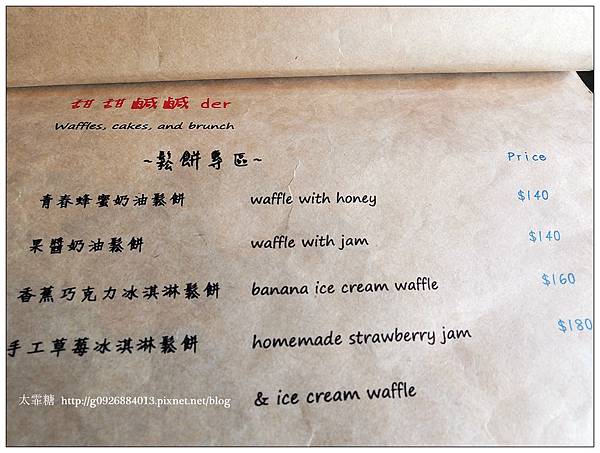 甜甜鹹鹹 der
Waffles, cakes, and brunch
~鬆餅專區~ Price
青春蜂蜜奶油鬆餅 waffle with honey $140
果醬奶油鬆餅 waffle with jam $140
香蕉巧克力冰淇淋鬆餅 banana ice cream waffle $160
手工草莓冰淇淋鬆餅 homemade strawberry jam $180
& ice cream waffle
太霏糖 http://g0926884013.pixnet.net/blog